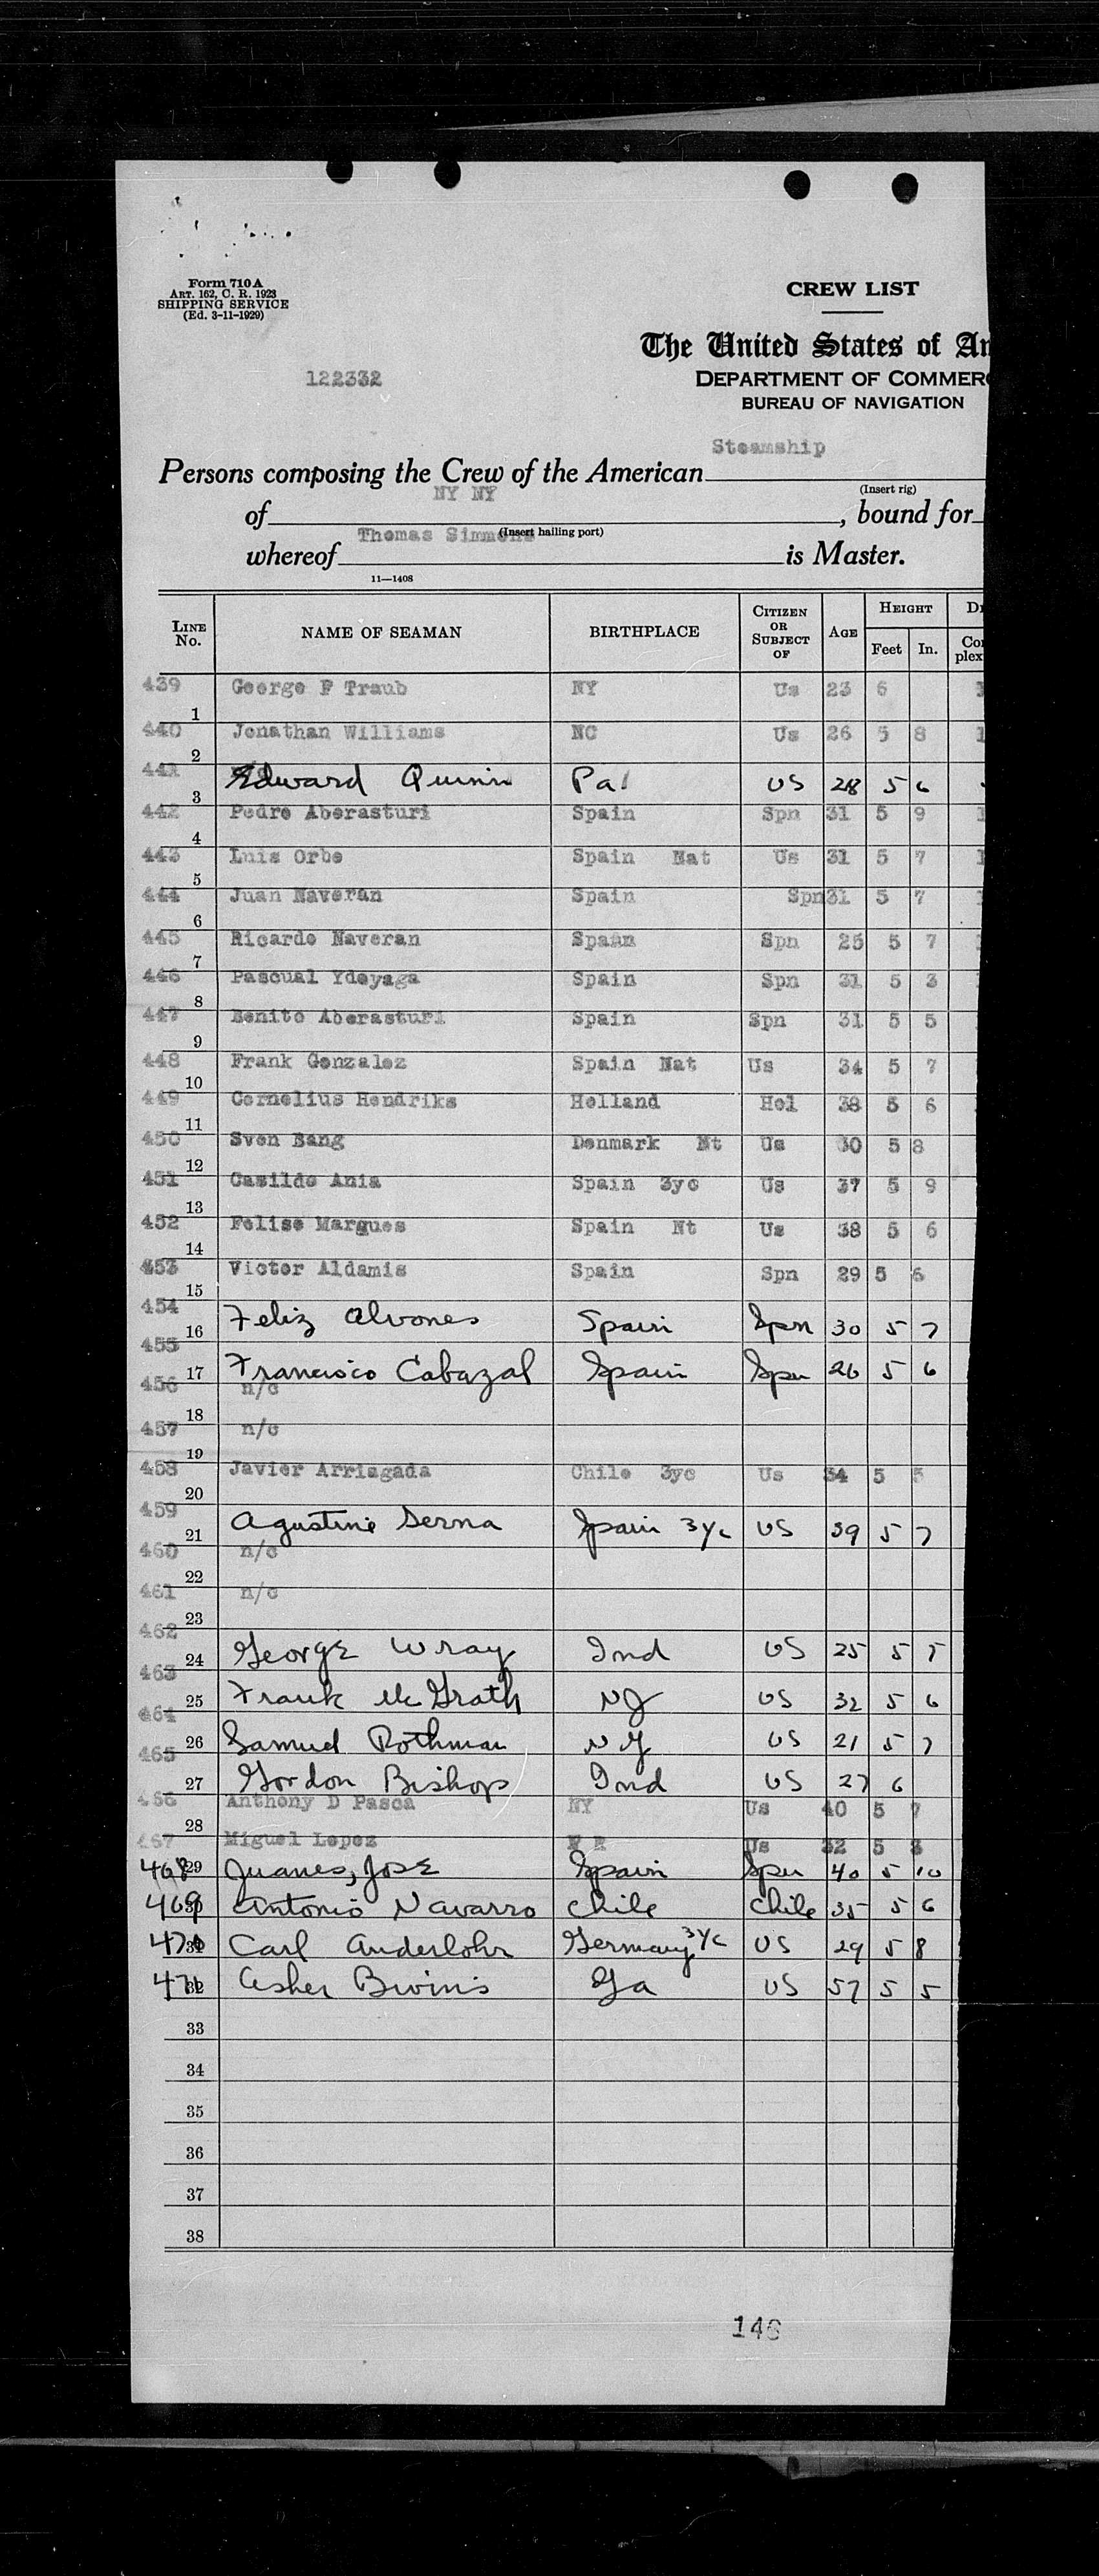 Form 710 A
ART. 162, C. R. 1923
SHIPPING SERVICE
(Ed. 3-11-1929)
CREW LIST
The United States of Am
122332
DEPARTMENT OF COMMER
BUREAU OF NAVIGATION
Steamship
Persons composing the Crew of the American
(Insert rig)
NY NY
of , bound for
(Insert hailing port)
Thomas Simmons
whereof is Master.
11—1408
LINE No. NAME OF SEAMAN BIRTHPLACE CITIZEN OR SUBJECT OF AGE HEIGHT Feet In.
439 1 George F Traub NY Us 23 6
440 2 Jonathan Williams NC Us 26 5 8
441 3 Edward Quinn Pa US 28 5 6
442 4 Pedro Aberasturi Spain Spn 31 5 9
443 5 Luis Orbe Spain Nat Us 31 5 7
444 6 Juan Naveran Spain Spn 31 5 7
445 7 Ricardo Naveran Spaan Spn 25 5 7
446 8 Pascual Ydeyaga Spain Spn 31 5 3
447 9 Benito Aberasturi Spain Spn 31 5 5
448 10 Frank Gonzalez Spain Nat Us 34 5 7
449 11 Cornelius Hendriks Holland Hol 38 5 6
450 12 Sven Bang Denmark Nt Us 30 5 8
451 13 Casildo Ania Spain 3yc Us 37 5 9
452 14 Felise Margues Spain Nt Us 38 5 6
453 15 Victor Aldamis Spain Spn 29 5 6
454 16 Feliz Alvones Spain Spn 30 5 7
455 17 Francisco Cabazal Spain Spn 26 5 6
456 18 n/c
457 19 n/c
458 20 Javier Arriagada Chile 3yc Us 34 5 5
459 21 Agustine Serna Spain 3yc US 39 5 7
460 22 n/c
461 23 n/c
462 24 George Wray Ind US 25 5 7
463 25 Frank McGrath NJ US 32 5 6
464 26 Samuel Rothman NY US 21 5 7
465 27 Gordon Bishop Ind US 27 6
466 28 Anthony D Pasca NY Us 40 5 7
467 Miguel Lopez P R Us 32 5 3
468 29 Juanes, Jose Spain Spn 40 5 10
469 30 Antonio Navarro Chile Chile 35 5 6
470 31 Carl Anderlohr Germany 3yc US 29 5 8
471 32 Asher Bivins Ga US 57 5 5
33
34
35
36
37
38
146